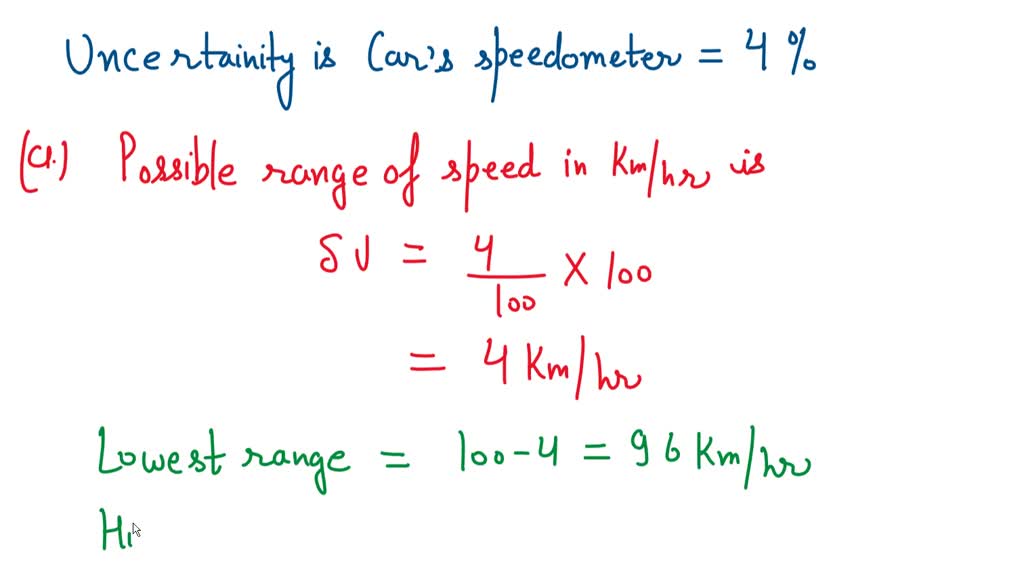 Uncertainity is Car's speedometer = 4%
(a.) Possible range of speed in Km/hr is
δV = 4/100 × 100
= 4 Km/hr
Lowest range = 100 - 4 = 96 Km/hr
Hi